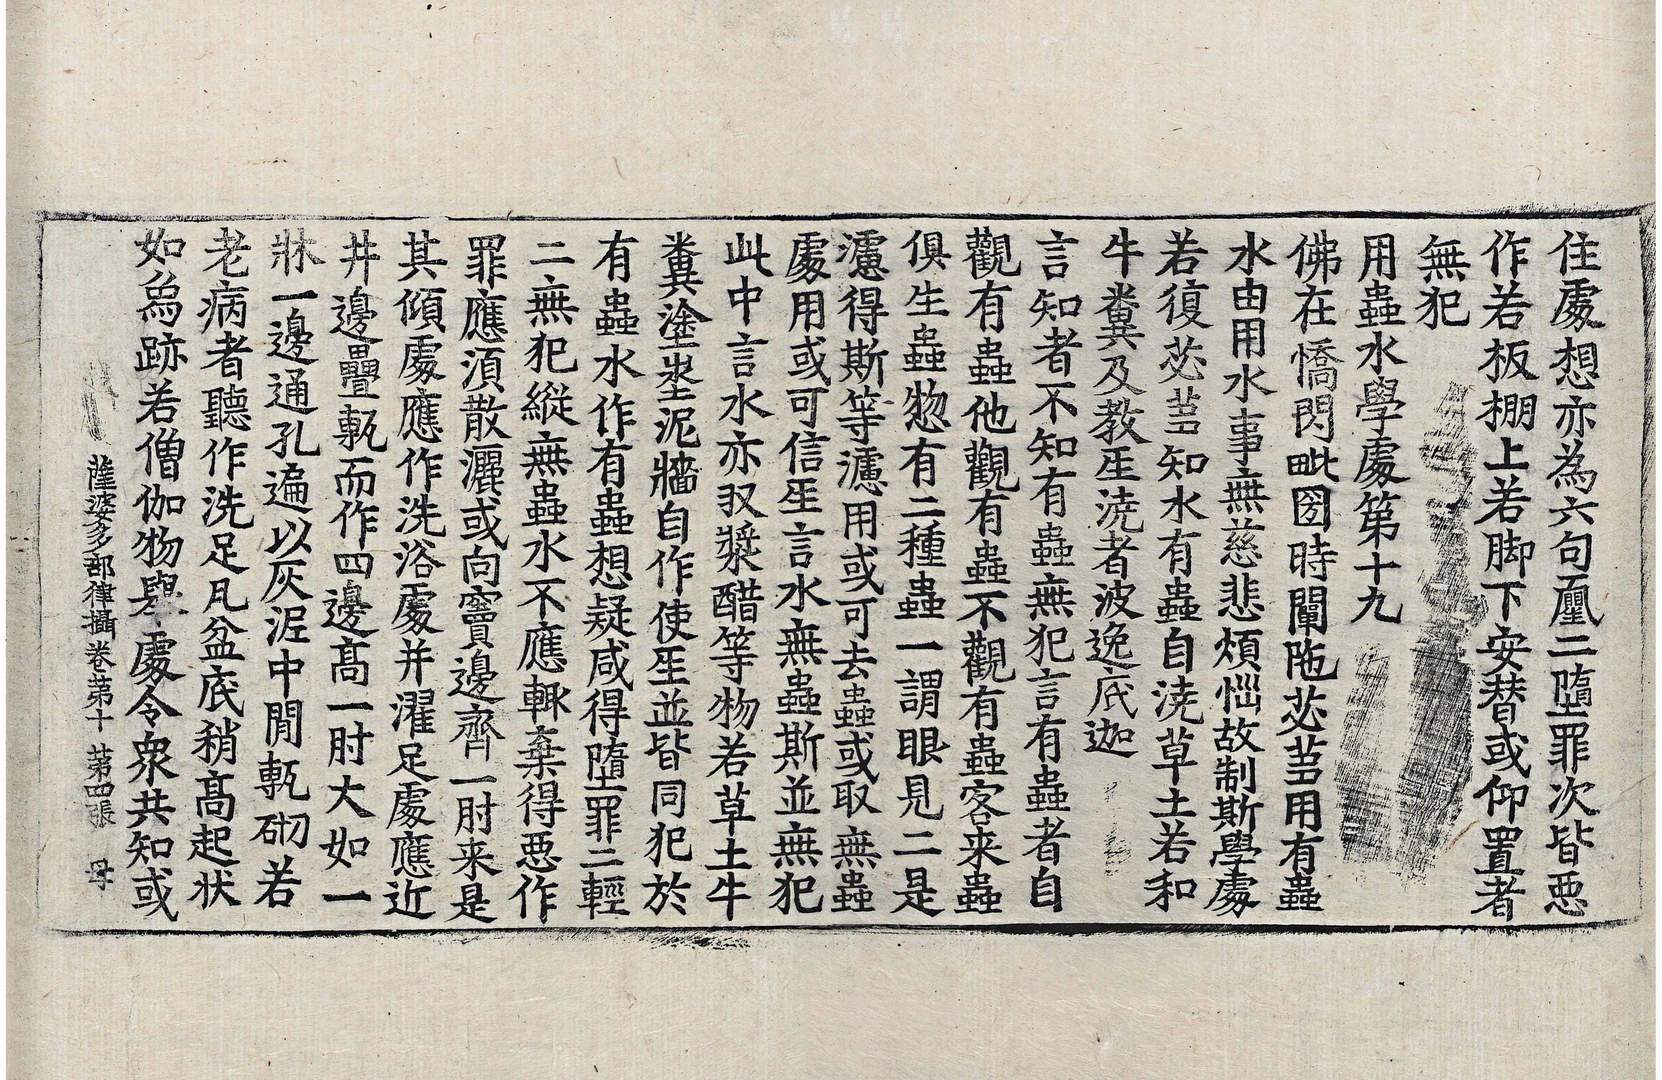 住處想亦為六句𠫵二墮罪次皆惡
作若板棚上若脚下安替或仰置者
無犯
用蟲水學處第十九
佛在憍閃毗國時闡陁苾芻用有蟲
水由用水事無慈悲煩惱故制斯學處
若復苾芻知水有蟲自澆草土若和
牛糞及教𤯔澆者波逸底迦
言知者不知有蟲無犯言有蟲者自
觀有蟲他觀有蟲不觀有蟲客来蟲
俱生蟲惣有二種蟲一謂眼見二是
濾得斯等濾用或可去蟲或取無蟲
處用或可信𤯔言水無蟲斯並無犯
此中言水亦収漿醋等物若草土牛
糞塗埿泥牆自作使𤯔並皆同犯於
有蟲水作有蟲想疑咸得墮罪二輕
二無犯縱無蟲水不應輒棄得惡作
罪應湏散灑或向竇邊齊一肘来是
其傾處應作洗浴處并濯足處應近
井邊疊甎而作四邊髙一肘大如一
牀一邊通孔遍以灰泥中閒甎砌若
老病者聽作洗足凡盆底稍髙起状
如烏跡若僧伽物舉處令衆共知或
薩婆多部律攝卷第十 第四張 母